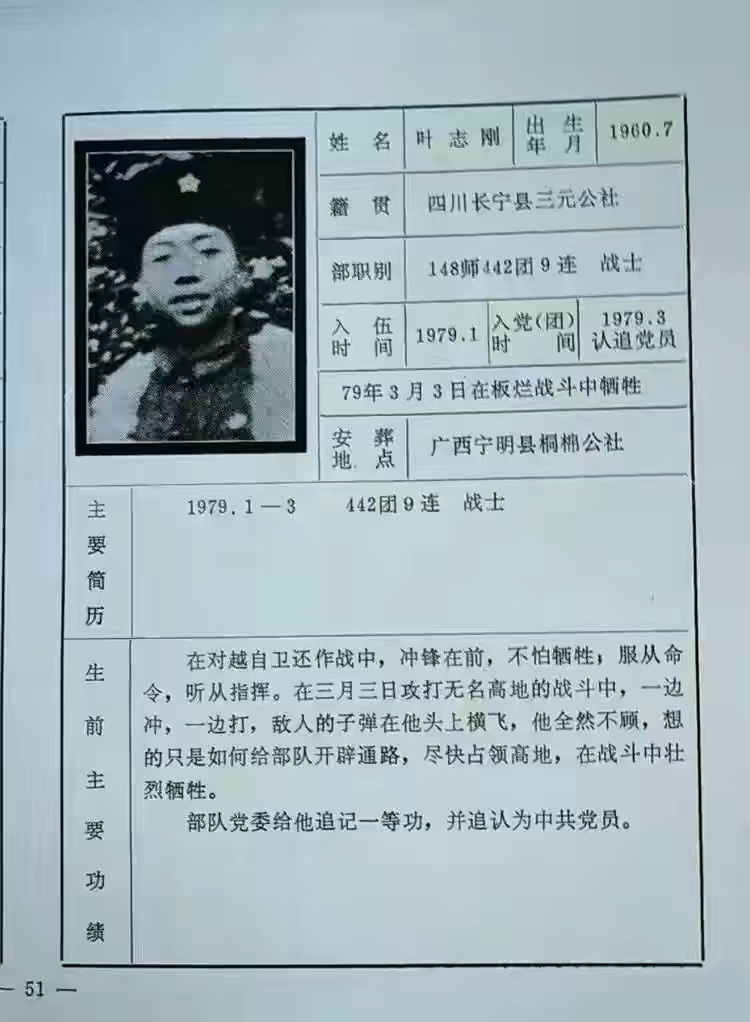 姓名 叶志刚 出生年月 1960.7
籍贯 四川长宁县三元公社
部职别 148师442团9连 战士
入伍时间 1979.1 入党(团)时间 1979.3 认追党员
79年3月3日在板烂战斗中牺牲
安葬地点 广西宁明县桐棉公社
主要简历 1979.1—3 442团9连 战士
生前主要功绩
在对越自卫还作战中，冲锋在前，不怕牺牲；服从命
令，听从指挥。在三月三日攻打无名高地的战斗中，一边
冲，一边打，敌人的子弹在他头上横飞，他全然不顾，想
的只是如何给部队开辟通路，尽快占领高地，在战斗中壮
烈牺牲。
部队党委给他追记一等功，并追认为中共党员。
— 51 —